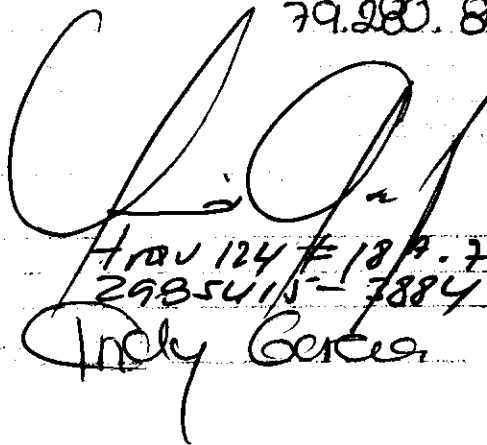 79.280.8
Trav 124 # 18A.7
2985415-3884
Indy Garcia